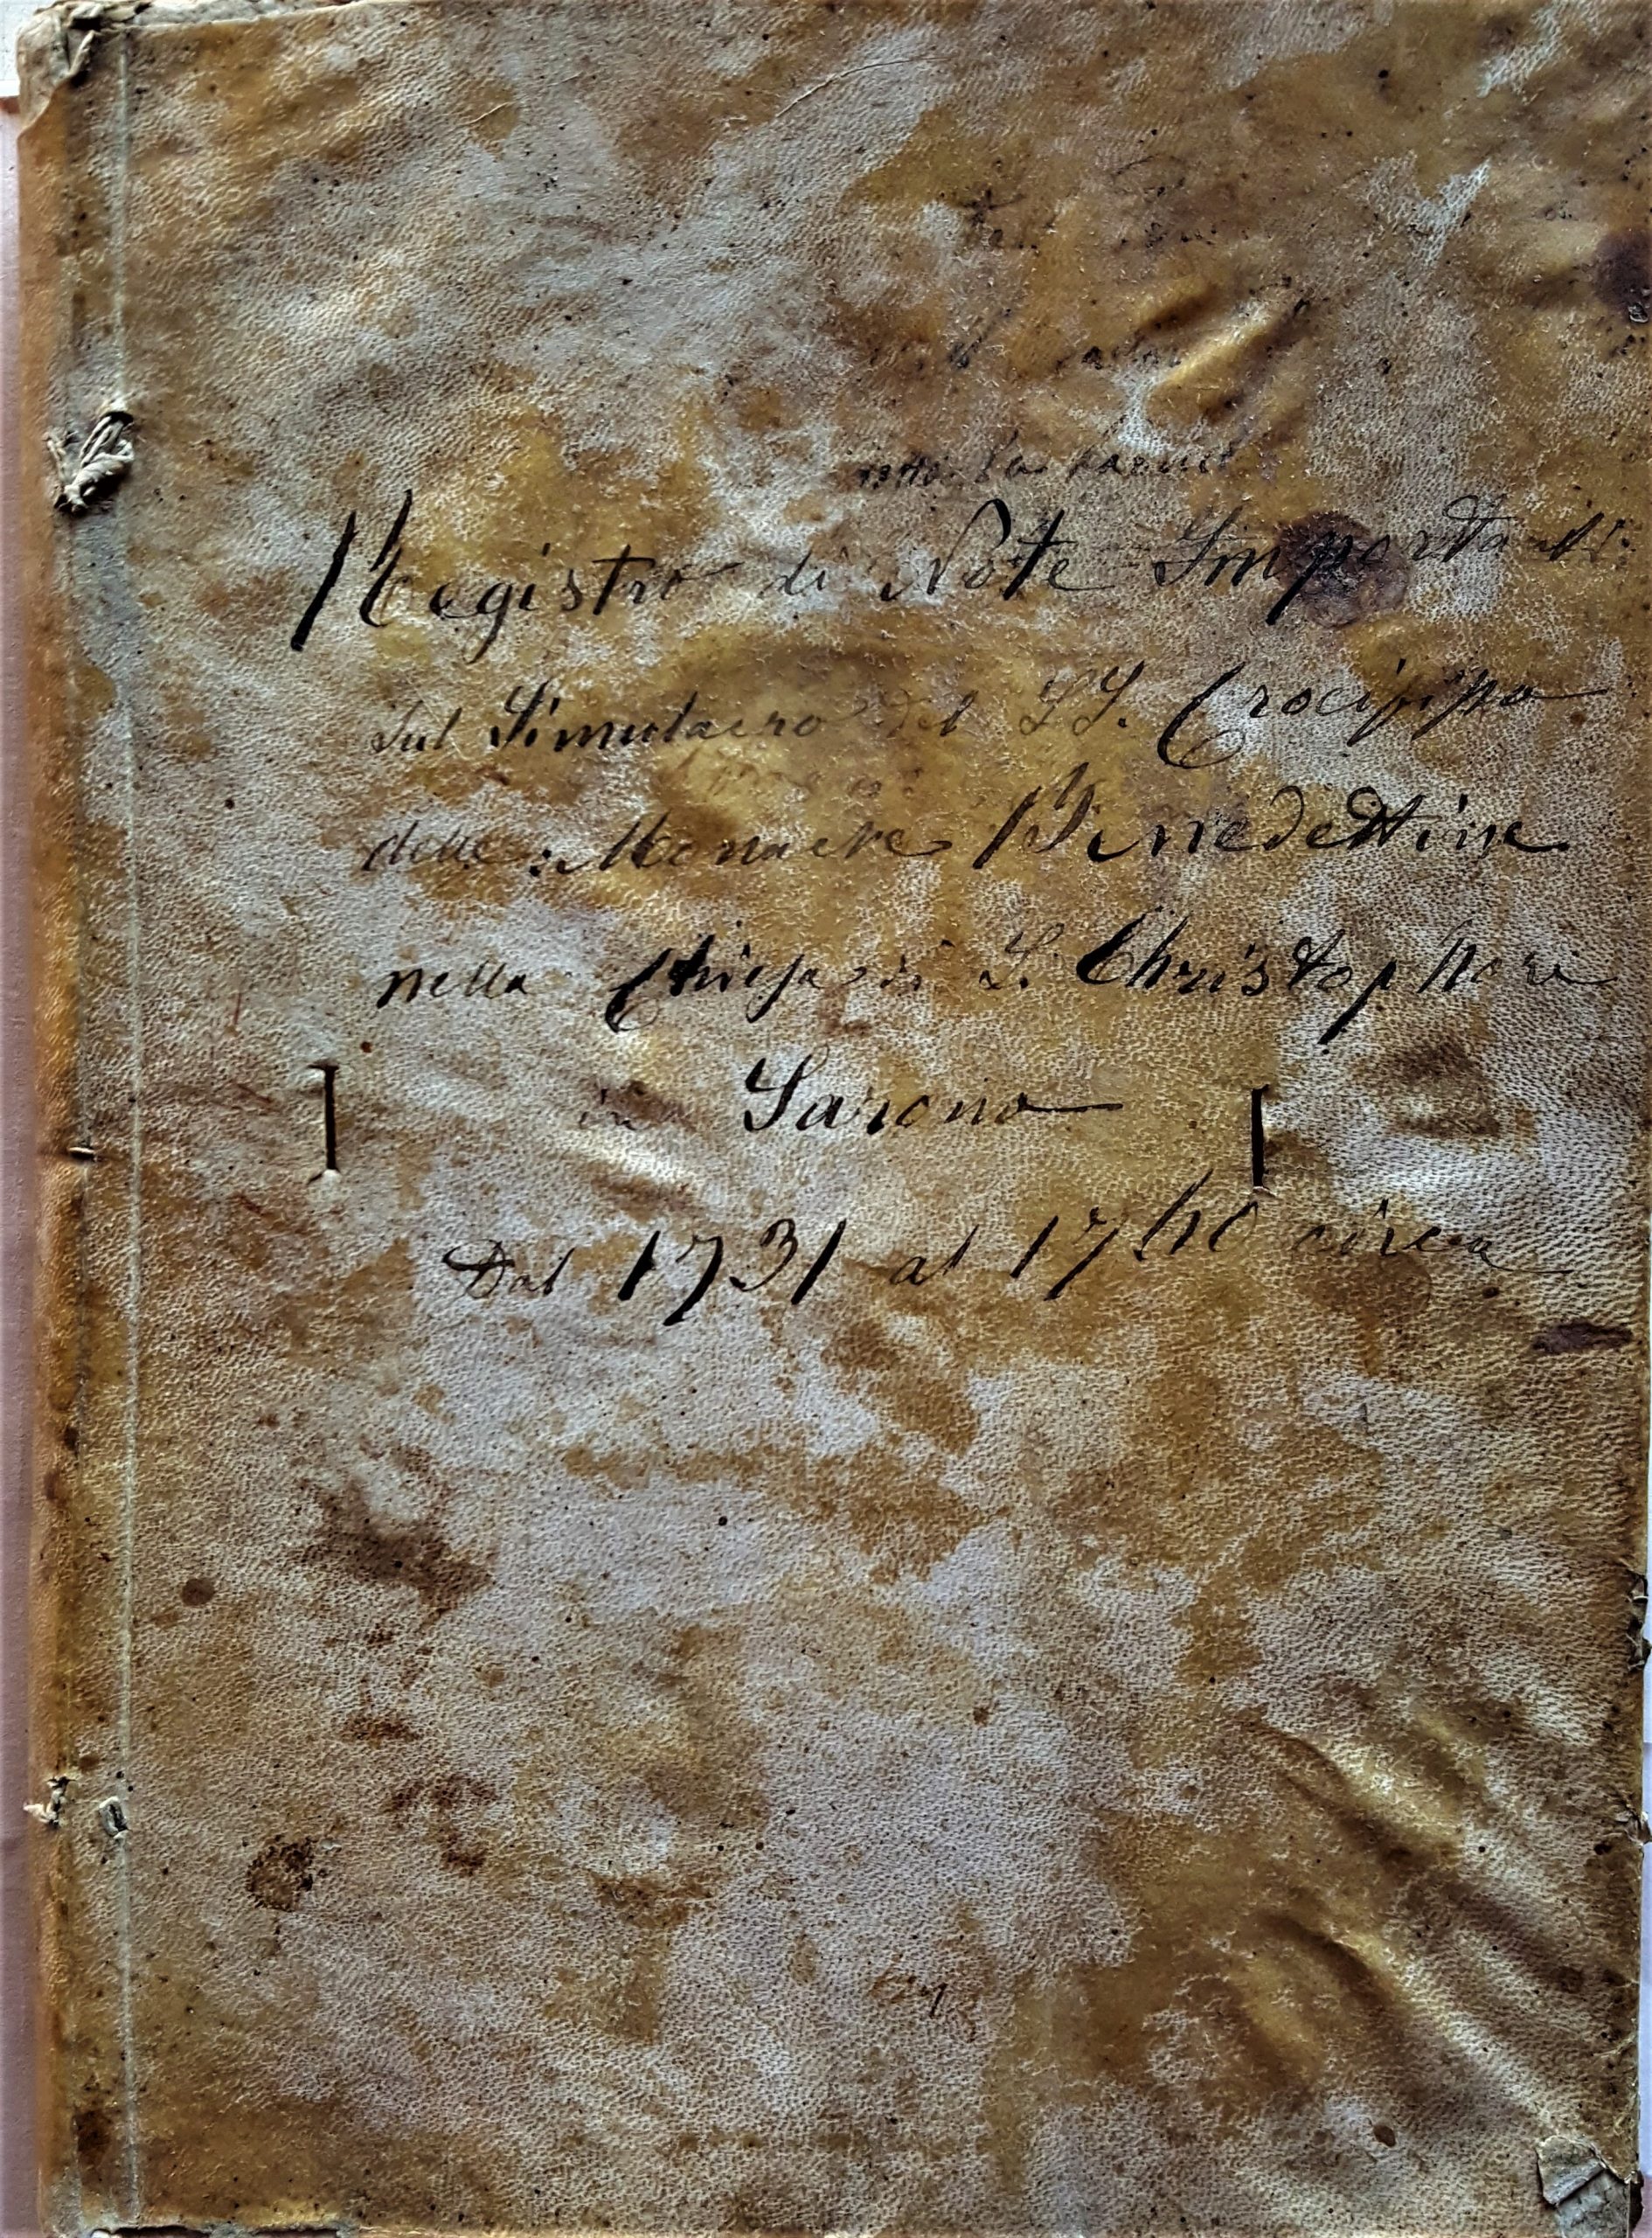 Registro di Note Importanti
sul Simulacro del SS. Crocifisso
delle Monache Benedettine
nella Chiesa di S. Christophoro
in Sarono
Dal 1731 al 1740 circa